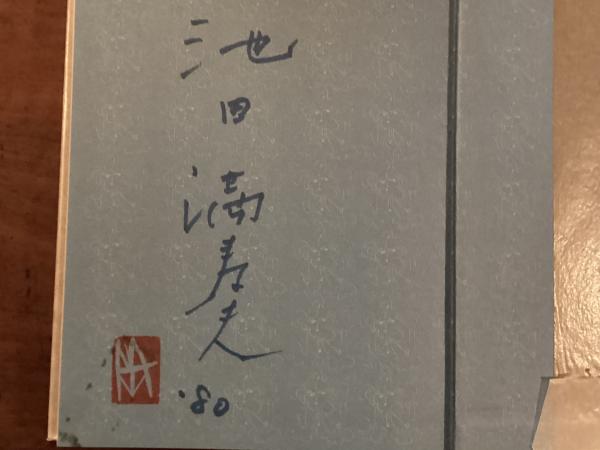 池田満寿夫
'80